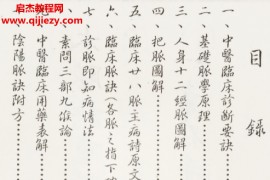 启杰教程网
www.qijiejiaocheng.com
目錄
一、中醫臨床診斷要訣
二、基礎脈學原理
三、人身十二經脈圖解
四、把脈圖解
五、臨床廿八脈主病詩原文
六、臨床脈訣(各脈之指下
七、診脈即知病情法
素問三部九候論
中醫臨床用藥表解
陰陽脈訣附方